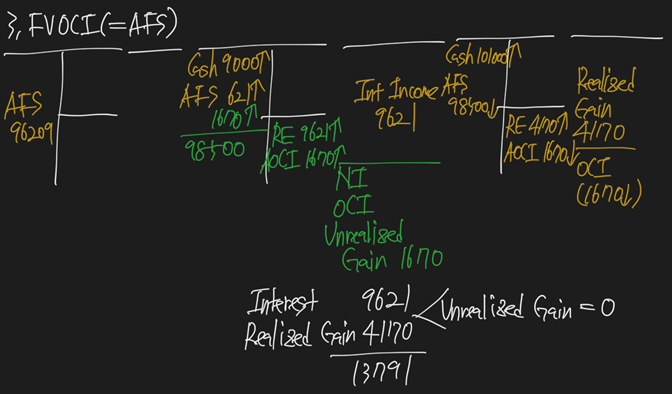 3, FVOCI(=AFS)
AFS
96209
Cash 9000↑
AFS 621↑
1670↑
98500
RE 9621↑
AOCI 1670↑
Int Income
9621
NI
OCI
Unrealized
Gain 1670
Cash 101000↑
AFS
98500↓
RE 4170↑
AOCI 1670↓
Realized
Gain
4170
OCI
(1670↓)
Interest 9621
Unrealized Gain = 0
Realized Gain 4170
13791